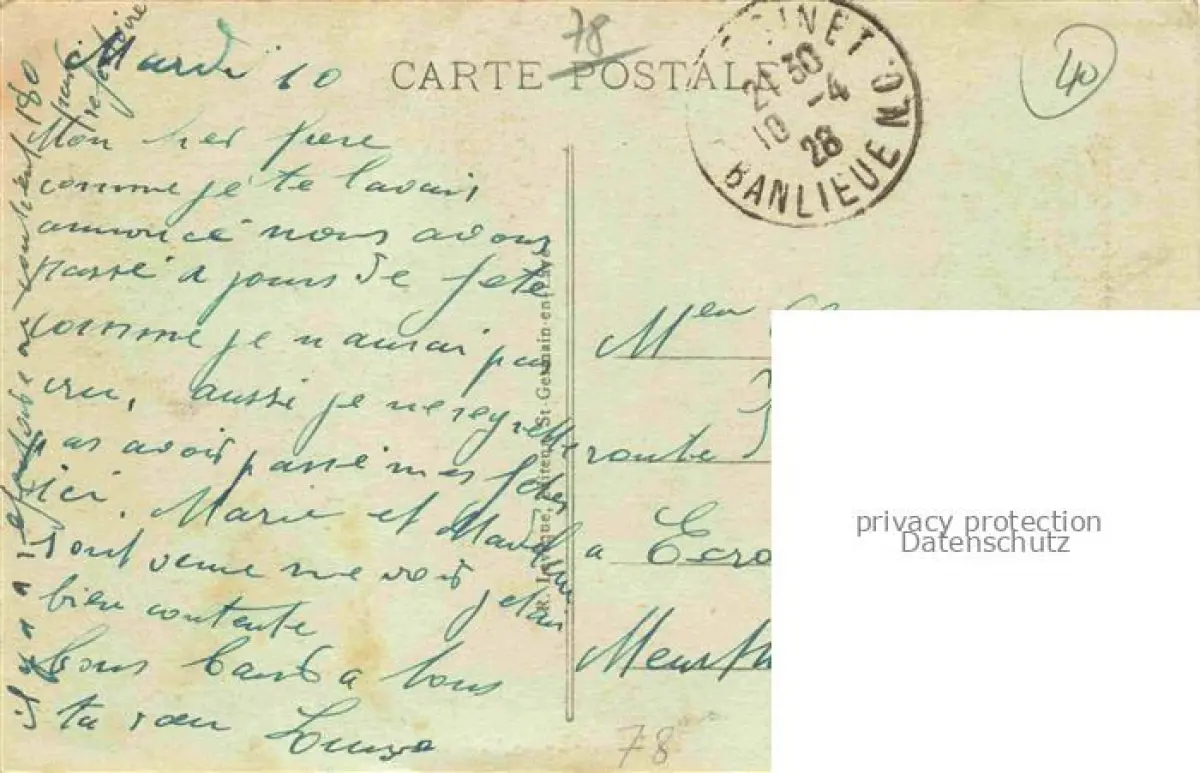 Mardi 10
CARTE POSTALE
78
40
21 30
10 -4
28
BANLIEUE
Mon cher frere
comme je te l'avais
annoncé nous avons
passé 2 jours de fete
comme je n'aurai pas
cru, aussi je ne regrette
pas avoir passé mes fetes
ici. Marie et
sont venue me voir jetais
bien contente
Bons baisers a tous
ta soeur Louise
il y a
180
St-Germain-en-Laye
Mr
route
a Ecro
Meurth
78
privacy protection
Datenschutz